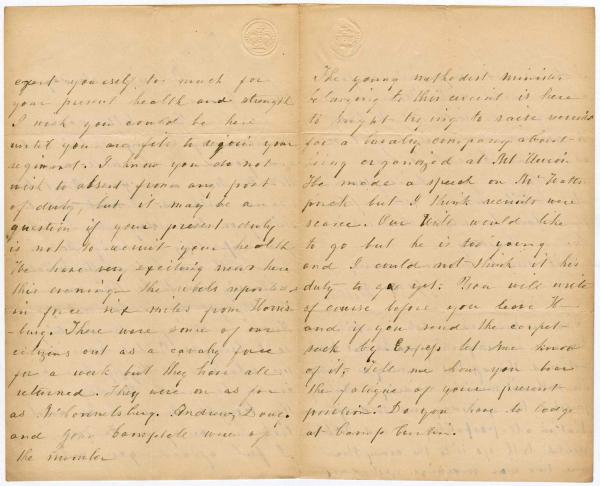 exert yourself too much for
your present health and strength
I wish you could be here
until you are fit to rejoin your
regiment. I know you do not
wish to absent from any post
of duty, but it may be a
question if your present duty
is not to recruit your health
We have very exciting news here
this evening the rebels reported
in force six miles from Harris-
burg. There were some of our
citizens out as a cavalry force
for a week but they have all
returned. They were on as far
as McConnelsburg. Andrew, Dave.
and John Campbell were of
the number
The young methodist minister
belonging to this circuit is here
to night trying to raise recruits
for a cavalry company about
being organized at Mt Union
He made a speech on
but I think recruits were
scarce. Our Will would like
to go but he is too young
and I could not think it his
duty to go yet. You will write
of course before you leave H
and if you send the carpet-
sack by Express let me know
of it. Tell me how you bear
the fatigue of your present
position. Do you have to lodge
at Camp Curtin.